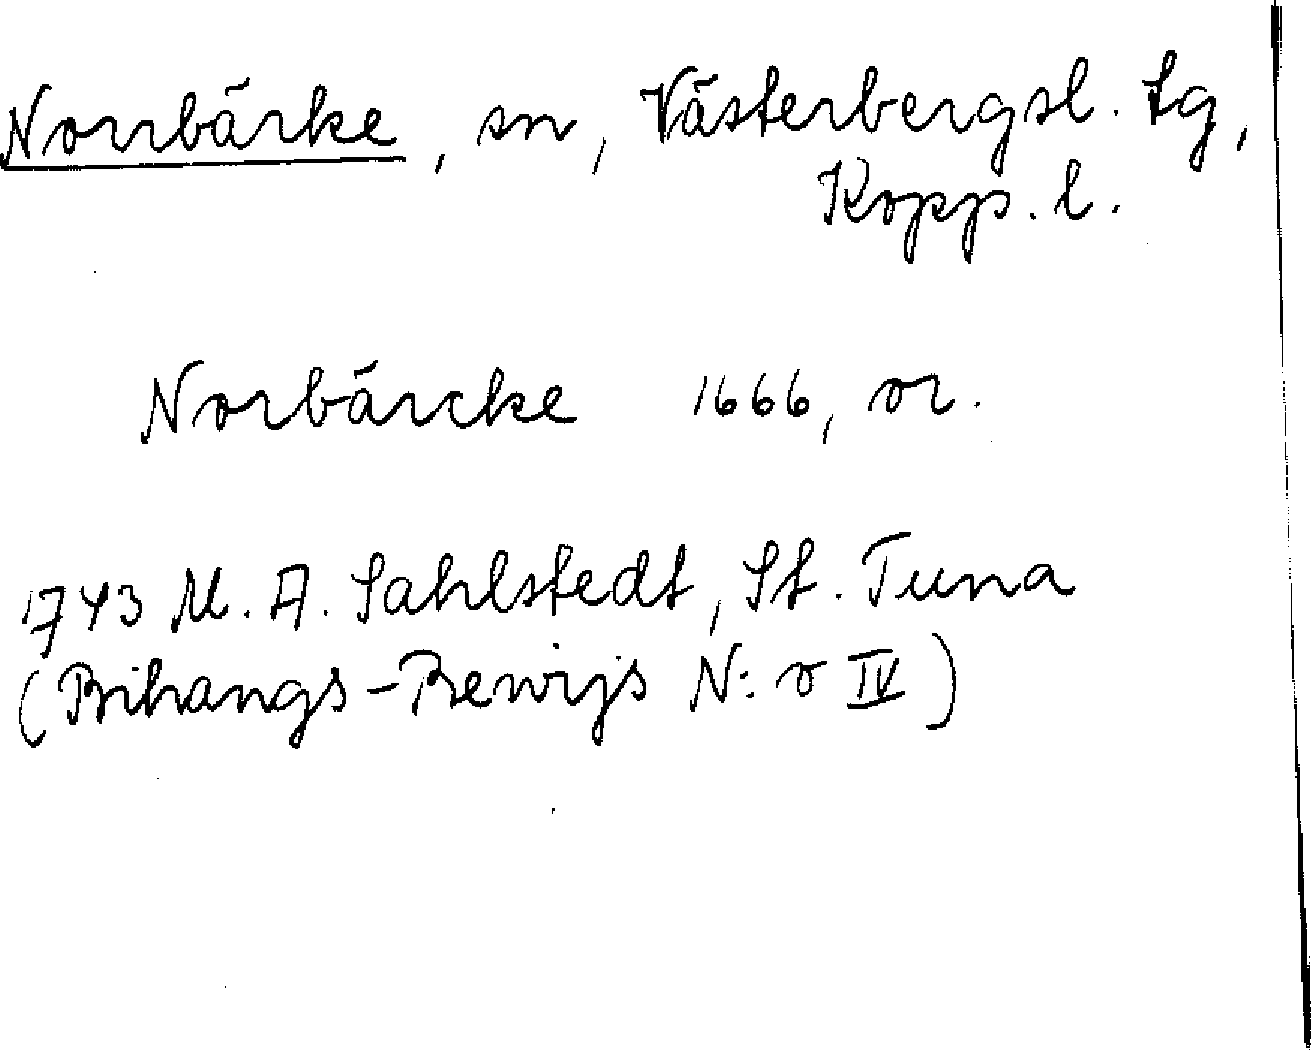 Norrbärke, sn, Västerbergsl. tg,
Kopp. l.
Norbärcke 1666, or.
1743 M. A. Sahlstedt, St. Tuna
(Bihangs-Bewijs N:o IV)